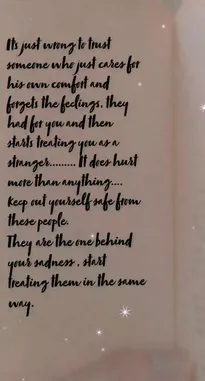 It's just wrong to trust
someone who just cares for
his own comfort and
forgets the feelings, they
had for you and then
starts treating you as a
stranger......... It does hurt
more than anything....
Keep out yourself safe from
these people.
They are the one behind
your sadness , start
treating them in the same
way.